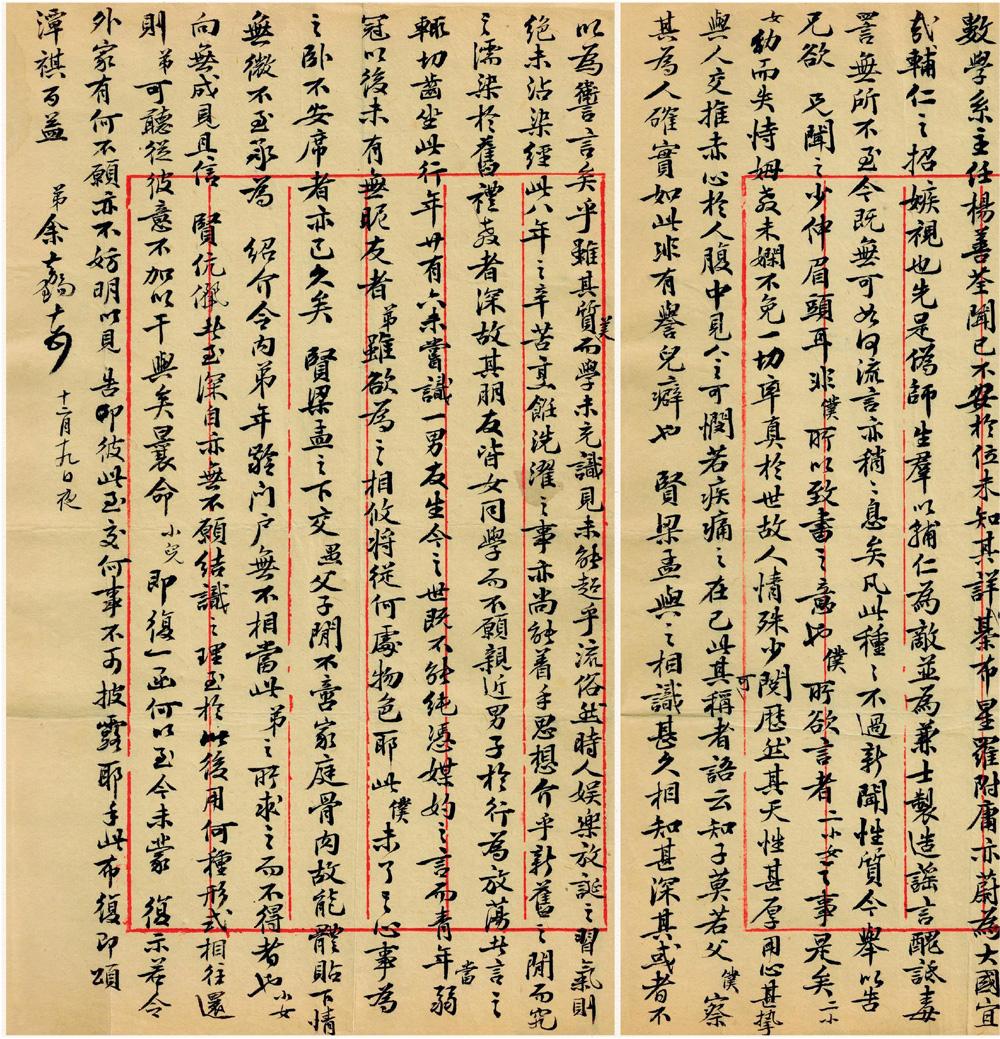 數學系主任楊善荃聞已不安於位未知其詳棊布星羅附庸亦蔚為大國宜
弍輔仁之招嫉視也先是偽師生羣以輔仁為敵並為兼士製造謠言醜詆毒
詈無所不至今既無可如何流言亦稍〻息矣凡此種〻不過新聞性質今舉以告
兄欲 兄聞之少伸眉頭耳非僕所以致書之意也僕所欲言者二小女之事是矣二小
女幼而失恃姆教未嫻不免一切率真於世故人情殊少閱歷然其天性甚厚用心甚摯
與人交推赤心於人腹中見人之可憫若疾痛之在己此其可稱者語云知子莫若父僕察
其為人確實如此非有譽兒癖也 賢梁孟與之相識甚久相知甚深其或者不
以為讆言矣乎雖其質美而學未充識見未能超乎流俗然時人娛樂放誕之習氣則
絕未沾染經此八年之辛苦烹飪洗濯之事亦尚能着手思想介乎新舊之間而究
之濡染於舊禮教者深故其朋友皆女同學而不願親近男子於行為放蕩者言之
輒切齒坐此行年廿有六未嘗識一男友生今之世既不能純憑媒妁之言而青年當弱
冠以後未有無昵友者弟雖欲為之相攸將從何處物色耶此僕未了之心事為
之臥不安席者亦已久矣 賢梁孟之下交愚父子間不啻家庭骨肉故能體貼下情
無微不至承為 紹介令內弟年齡門戶無不相當此弟之所求之而不得者也小女
向無成見且信 賢伉儷者至深自亦無不願結識之理至於此後用何種形式相往還
則弟可聽從彼意不加以干與矣曩命小兒即復一函何以至今未蒙 復示若令
外家有何不願亦不妨明以見 告即彼此至交何事不可披露耶手此布復即頌
潭祺百益
弟余嘉錫
十二月十九日夜